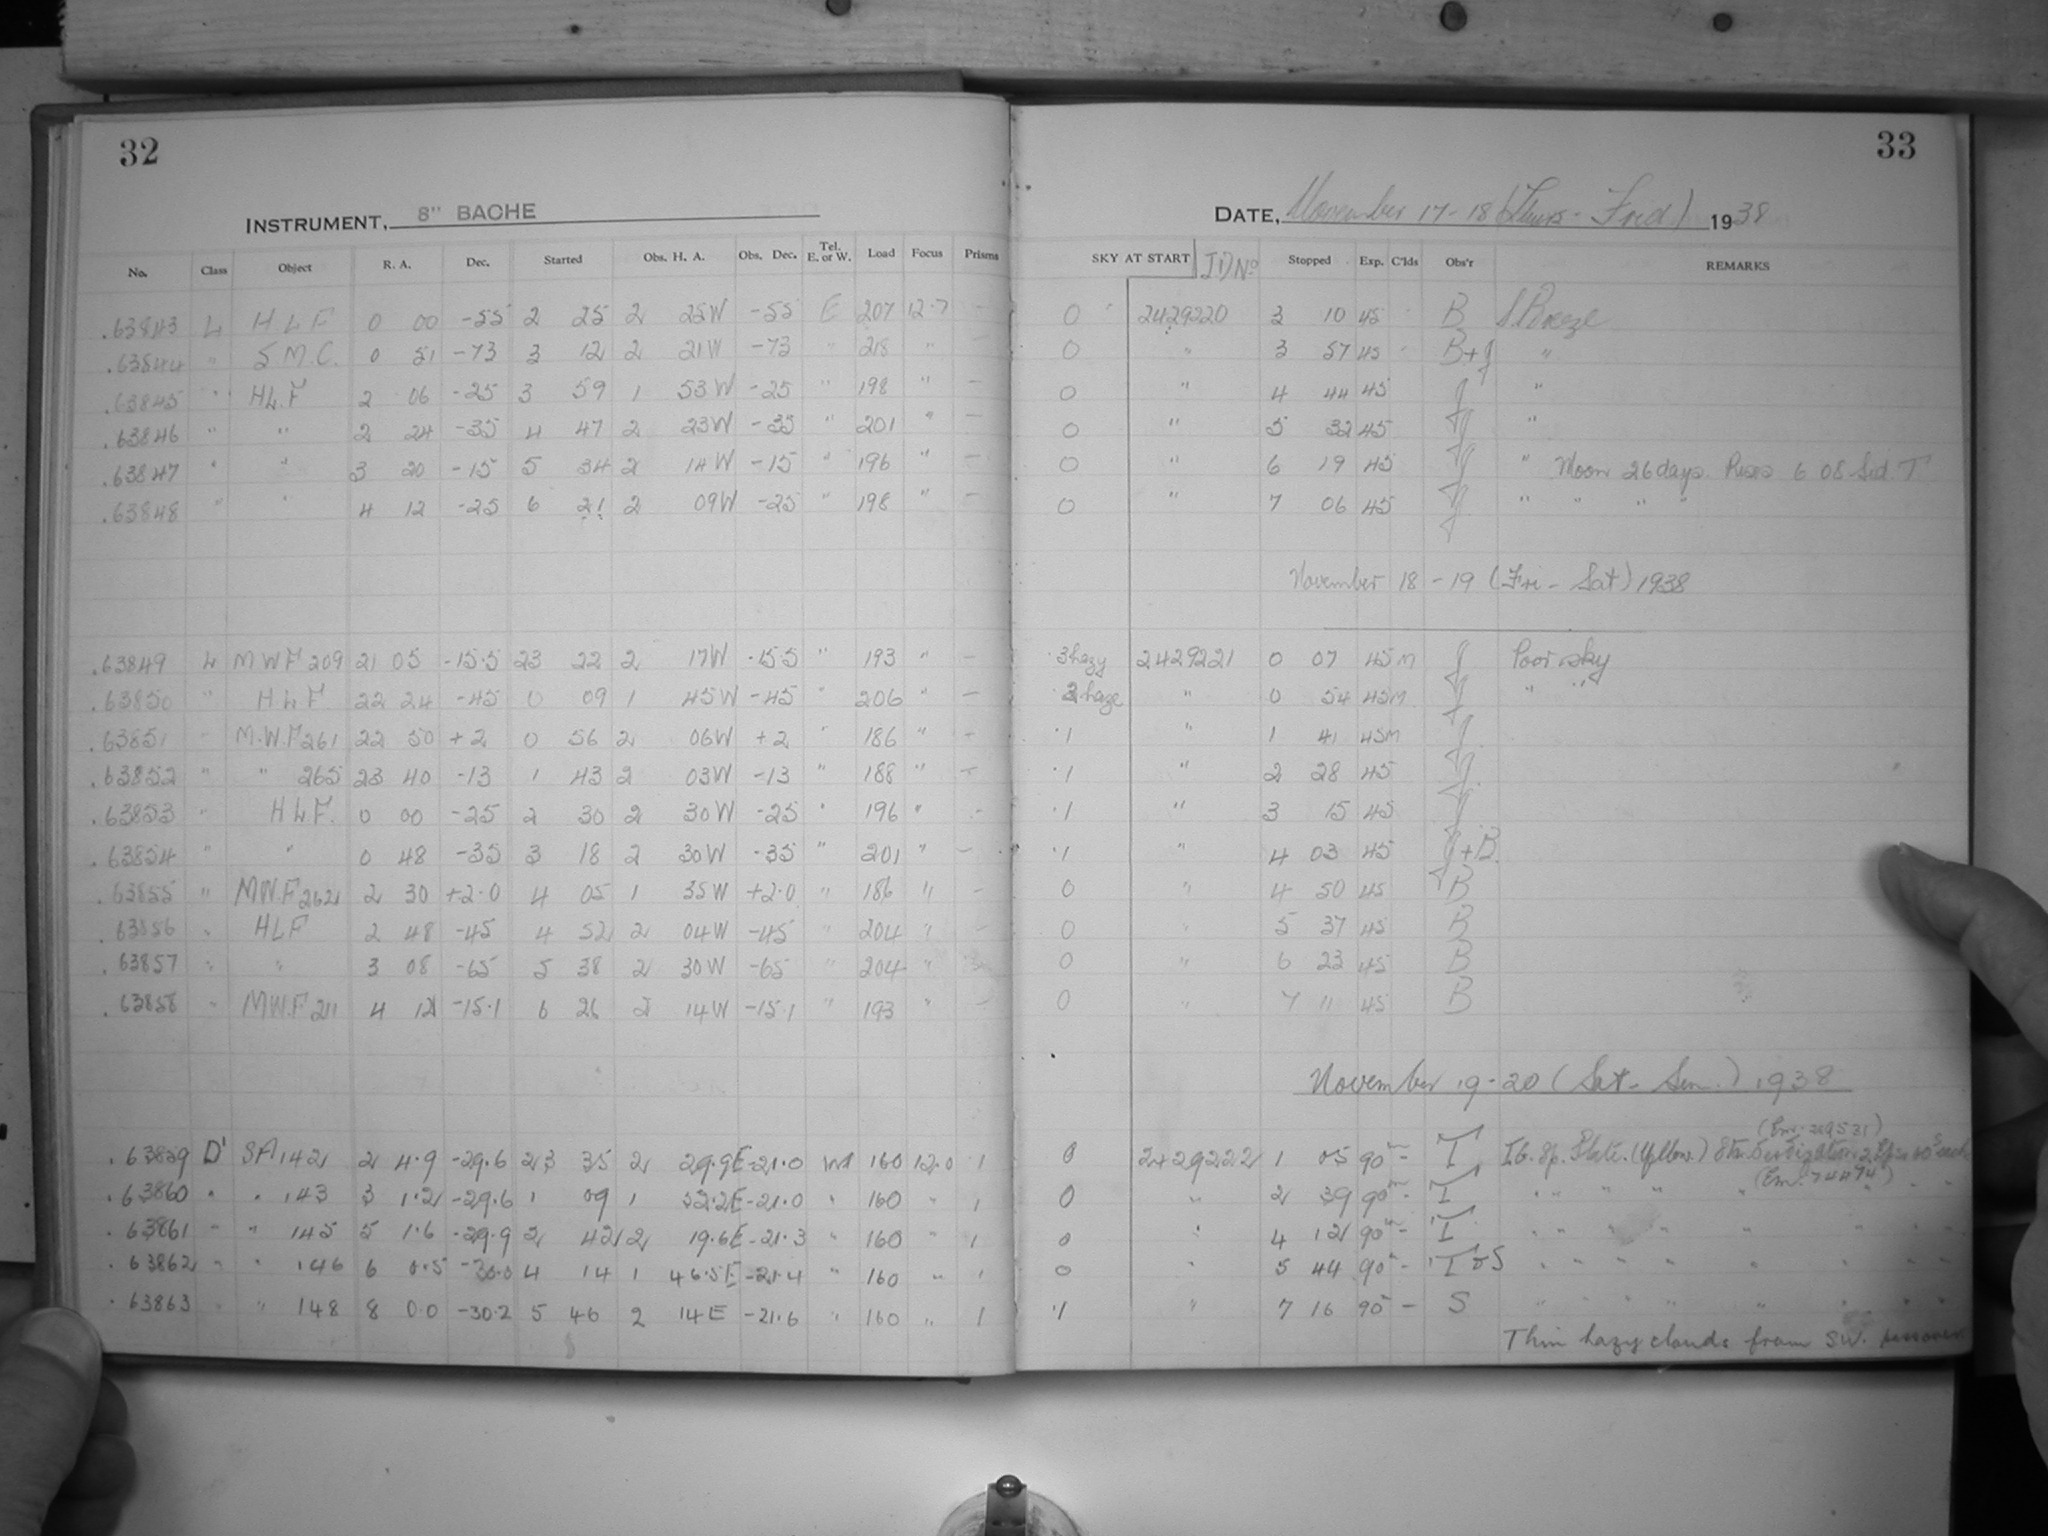 32
INSTRUMENT, 8" BACHE
No. Class Object R. A. Dec. Started Obs. H. A. Obs. Dec. Tel. E. or W. Load Focus Prisms
.63843 L H L F 0 00 -55 2 25 2 25W -55 E 207 12.7 -
.63844 " S M.C. 0 51 -73 3 12 2 21W -73 " 218 " -
.63845 " HL.F 2 06 -25 3 59 1 53W -25 " 198 " -
.63846 " " 2 24 -35 4 47 2 23W -35 " 201 " -
.63847 " " 3 20 -15 5 34 2 14W -15 " 196 " -
.63848 " " 4 12 -25 6 21 2 09W -25 " 198 " -
.63849 L MWF 209 21 05 -15.5 23 22 2 17W -15.5 " 193 " -
.63850 " HLF 22 24 -45 0 09 1 45W -45 " 206 -
.63851 " M.W.F 261 22 50 +2 0 56 2 06W +2 " 186 " -
.63852 " " 265 23 40 -13 1 43 2 03W -13 " 188 " -
.63853 " HLF. 0 00 -25 2 30 2 30W -25 " 196 " -
.63854 " " 0 48 -35 3 18 2 30W -35 " 201 " -
.63855 " MW.F 262 2 30 +2.0 4 05 1 35W +2.0 " 186 " -
.63856 " HLF 2 48 -45 4 52 2 04W -45 " 204 " -
.63857 " " 3 08 -65 5 38 2 30W -65 " 204 "
.63858 " MW.F 211 4 12 -15.1 6 26 2 14W -15.1 " 193 " -
.63859 D' SA 142 2 4.9 -29.6 23 35 2 29.9E -21.0 160 12.0 1
.63860 " " 143 3 1.2 -29.6 1 09 1 52.2E -21.0 " 160 " 1
.63861 " " 145 5 1.6 -29.9 2 42 2 19.6E -21.3 " 160 " 1
.63862 " " 146 6 0.5 -30.0 4 14 1 46.5E -21.4 " 160 " 1
.63863 " " 148 8 0.0 -30.2 5 46 2 14E -21.6 " 160 " 1
33
DATE, November 17-18 (Thurs - Frid) 1938
SKY AT START J D No Stopped Exp. C'lds Obs'r REMARKS
0 2429220 3 10 45 B S Breeze
0 " 3 57 45 B+J "
0 " 4 44 45 J "
0 " 5 32 45 J "
0 " 6 19 45 J " Moon 26 days. Rises 6 08 Sid T
0 " 7 06 45 J " " " "
November 18 - 19 (Fri - Sat) 1938
3 hazy 2429221 0 07 45M J Poor sky
2 haze " 0 54 45M J " "
.1 " 1 41 45M J
.1 " 2 28 45 J
.1 " 3 15 45 J
.1 " 4 03 45 J+B
0 " 4 50 45 B
0 " 5 37 45 B
0 " 6 23 45 B
0 " 7 11 45 B
November 19-20 (Sat - Sun.) 1938
0 2429222 1 05 90m - T Plate. (Yellow.)
0 " 2 39 90m - T " " " " "
0 " 4 12 90m - T " " " " "
0 " 5 44 90m - T & S " " " " "
.1 " 7 16 90 - S " " " " "
Thin hazy clouds from SW.